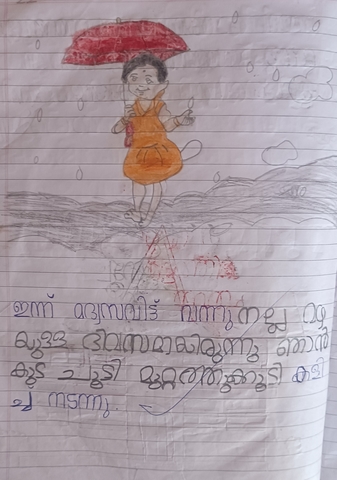 ഇന്ന് മദ്രസവിട്ട് വന്നു നല്ല മഴ
യുള്ള ദിവസമായിരുന്നു ഞാൻ
കുട ചൂടി മുറ്റത്തുക്കൂടി കളി
ച്ച് നടന്നു.